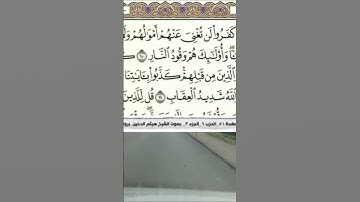 كَفَرُوا۟ لَن تُغْنِىَ عَنْهُمْ أَمْوَٰلُهُمْ وَلَآ
وَأُو۟لَٰٓئِكَ هُمْ وَقُودُ ٱلنَّارِ ١٠
وَٱلَّذِينَ مِن قَبْلِهِمْ كَذَّبُوا۟ بِـَٔايَٰتِنَا
وَٱللَّهُ شَدِيدُ ٱلْعِقَابِ ١١ قُل لِّلَّذِينَ
صفحة ٥١ الحزب ٦ الجزء ٣ بصوت الشيخ هيثم الدخين